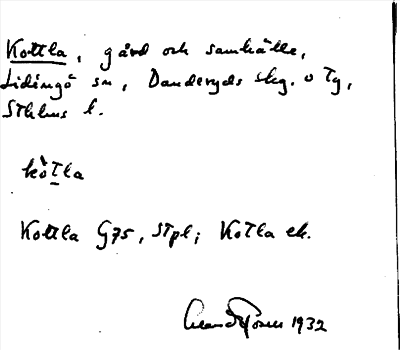 Kottla, gård och samhälle,
Lidingö sn, Danderyds skg. o Tg,
Sthlms l.
kòtla
Kottla G75, Stpl; Kotla ek.
1932